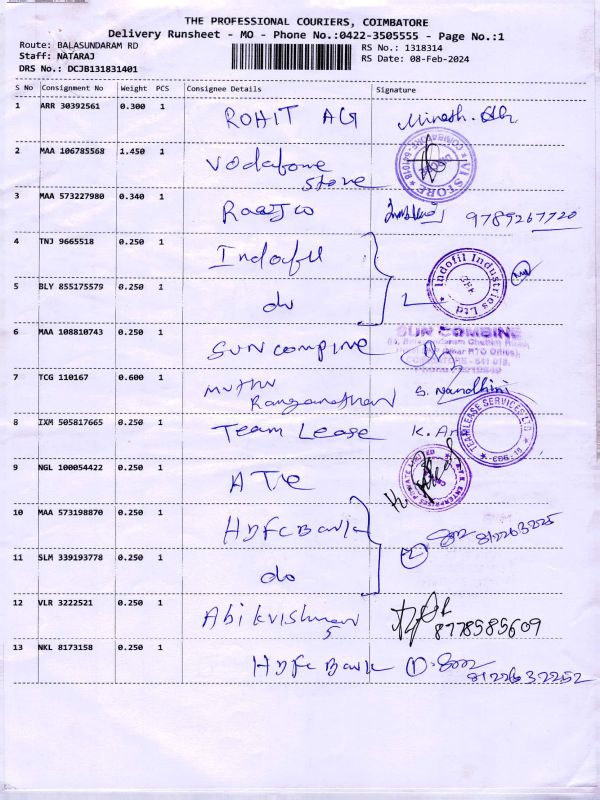 THE PROFESSIONAL COURIERS, COIMBATORE
Delivery Runsheet - MO - Phone No.:0422-3505555 - Page No.:1
Route: BALASUNDARAM RD
RS No.: 1318314
Staff: NATARAJ
RS Date: 08-Feb-2024
DRS No.: DCJB131831401
S No Consignment No Weight PCS Consignee Details Signature
1 ARR 30392561 0.300 1 ROHIT AG
2 MAA 106785568 1.450 1 Vodafone
Store
VI STORE
3 MAA 573227980 0.340 1 9789267720
4 TNJ 9665518 0.250 1 Indofil
Indofil Industries Ltd
5 BLY 855175579 0.250 1 do 2
6 MAA 108810743 0.250 1 SUN compine
SUN COMBINE
7 TCG 110167 0.600 1 Muthu
Ranganathan S. Nandhini
8 IXM 505817665 0.250 1 Team Lease K.
TEAMLEASE SERVICES LTD.
9 NGL 100054422 0.250 1
10 MAA 573198870 0.250 1 HDFC Bank 2
11 SLM 339193778 0.250 1 do
12 VLR 3222521 0.250 1 Abi krishnan
8778585609
13 NKL 8173158 0.250 1 HDFC Bank 1